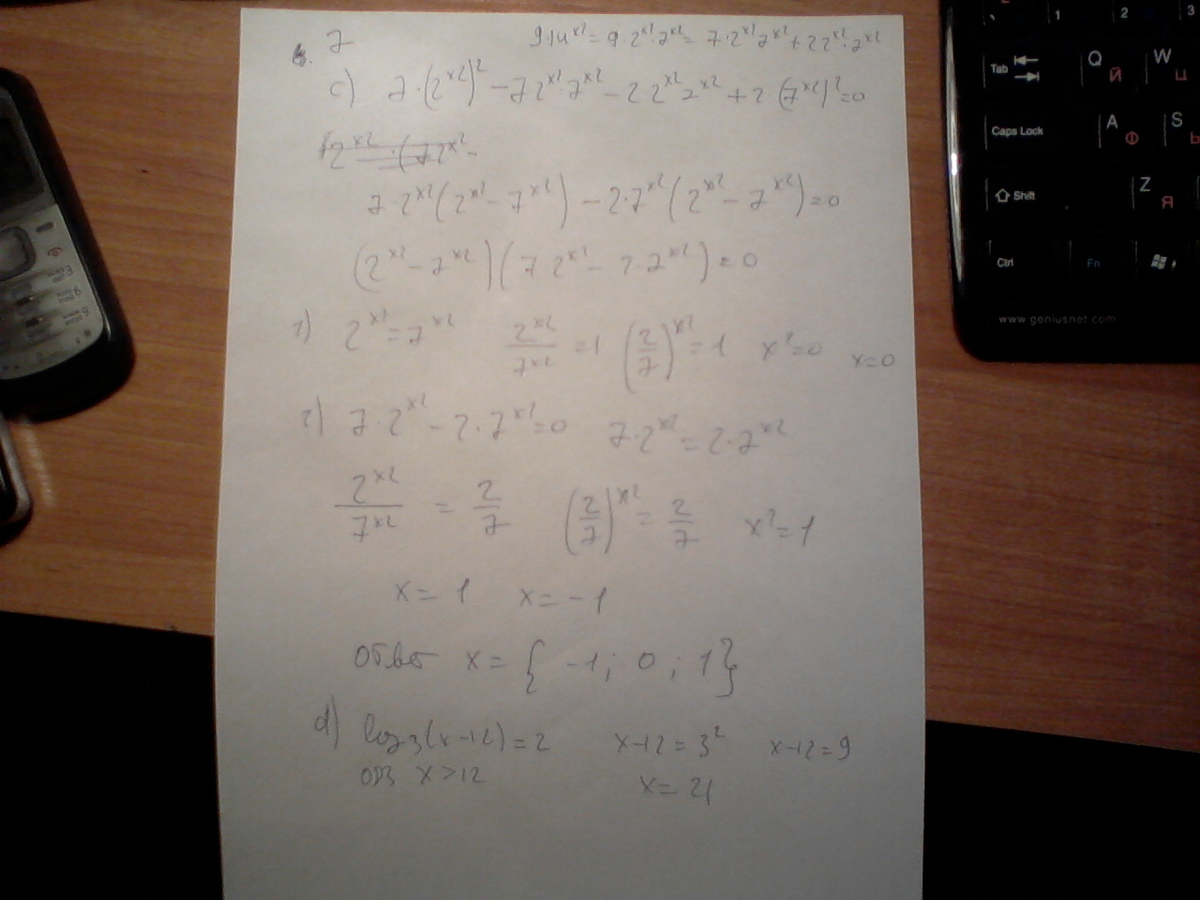 7
9·14^x² = 9·2^x²·7^x² = 7·2^x²7^x² + 2 2^x²·7^x²
c) 7·(2^x²)² − 7 2^x²·7^x² − 2 2^x² 7^x² + 2 (7^x²)² = 0
7·2^x²(2^x² − 7^x²) − 2·7^x²(2^x² − 7^x²) = 0
(2^x² − 7^x²)(7·2^x² − 2·7^x²) = 0
1) 2^x² = 7^x² 2^x²/7^x² = 1 (2/7)^x² = 1 x² = 0 x = 0
2) 7·2^x² − 2·7^x² = 0 7·2^x² = 2·7^x²
2^x²/7^x² = 2/7 (2/7)^x² = 2/7 x² = 1
x = 1 x = −1
Ответ x = { −1; 0; 1}
d) log₃(x−12) = 2 x−12 = 3² x−12 = 9
ОДЗ x > 12 x = 21
1 2 3
Tab Q Й W Ц
Caps Lock A Ф S Ы
Shift Z Я
Ctrl Fn
www.geniusnet.com